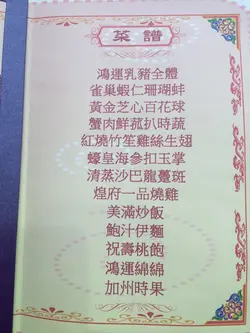 菜譜
鴻運乳豬全體
雀巢蝦仁珊瑚蚌
黃金芝心百花球
蟹肉鮮菰扒時蔬
紅燒竹笙雞絲生翅
蠔皇海參扣玉掌
清蒸沙巴龍躉斑
煌府一品燒雞
美滿炒飯
鮑汁伊麵
祝壽桃飽
鴻運綿綿
加州時果